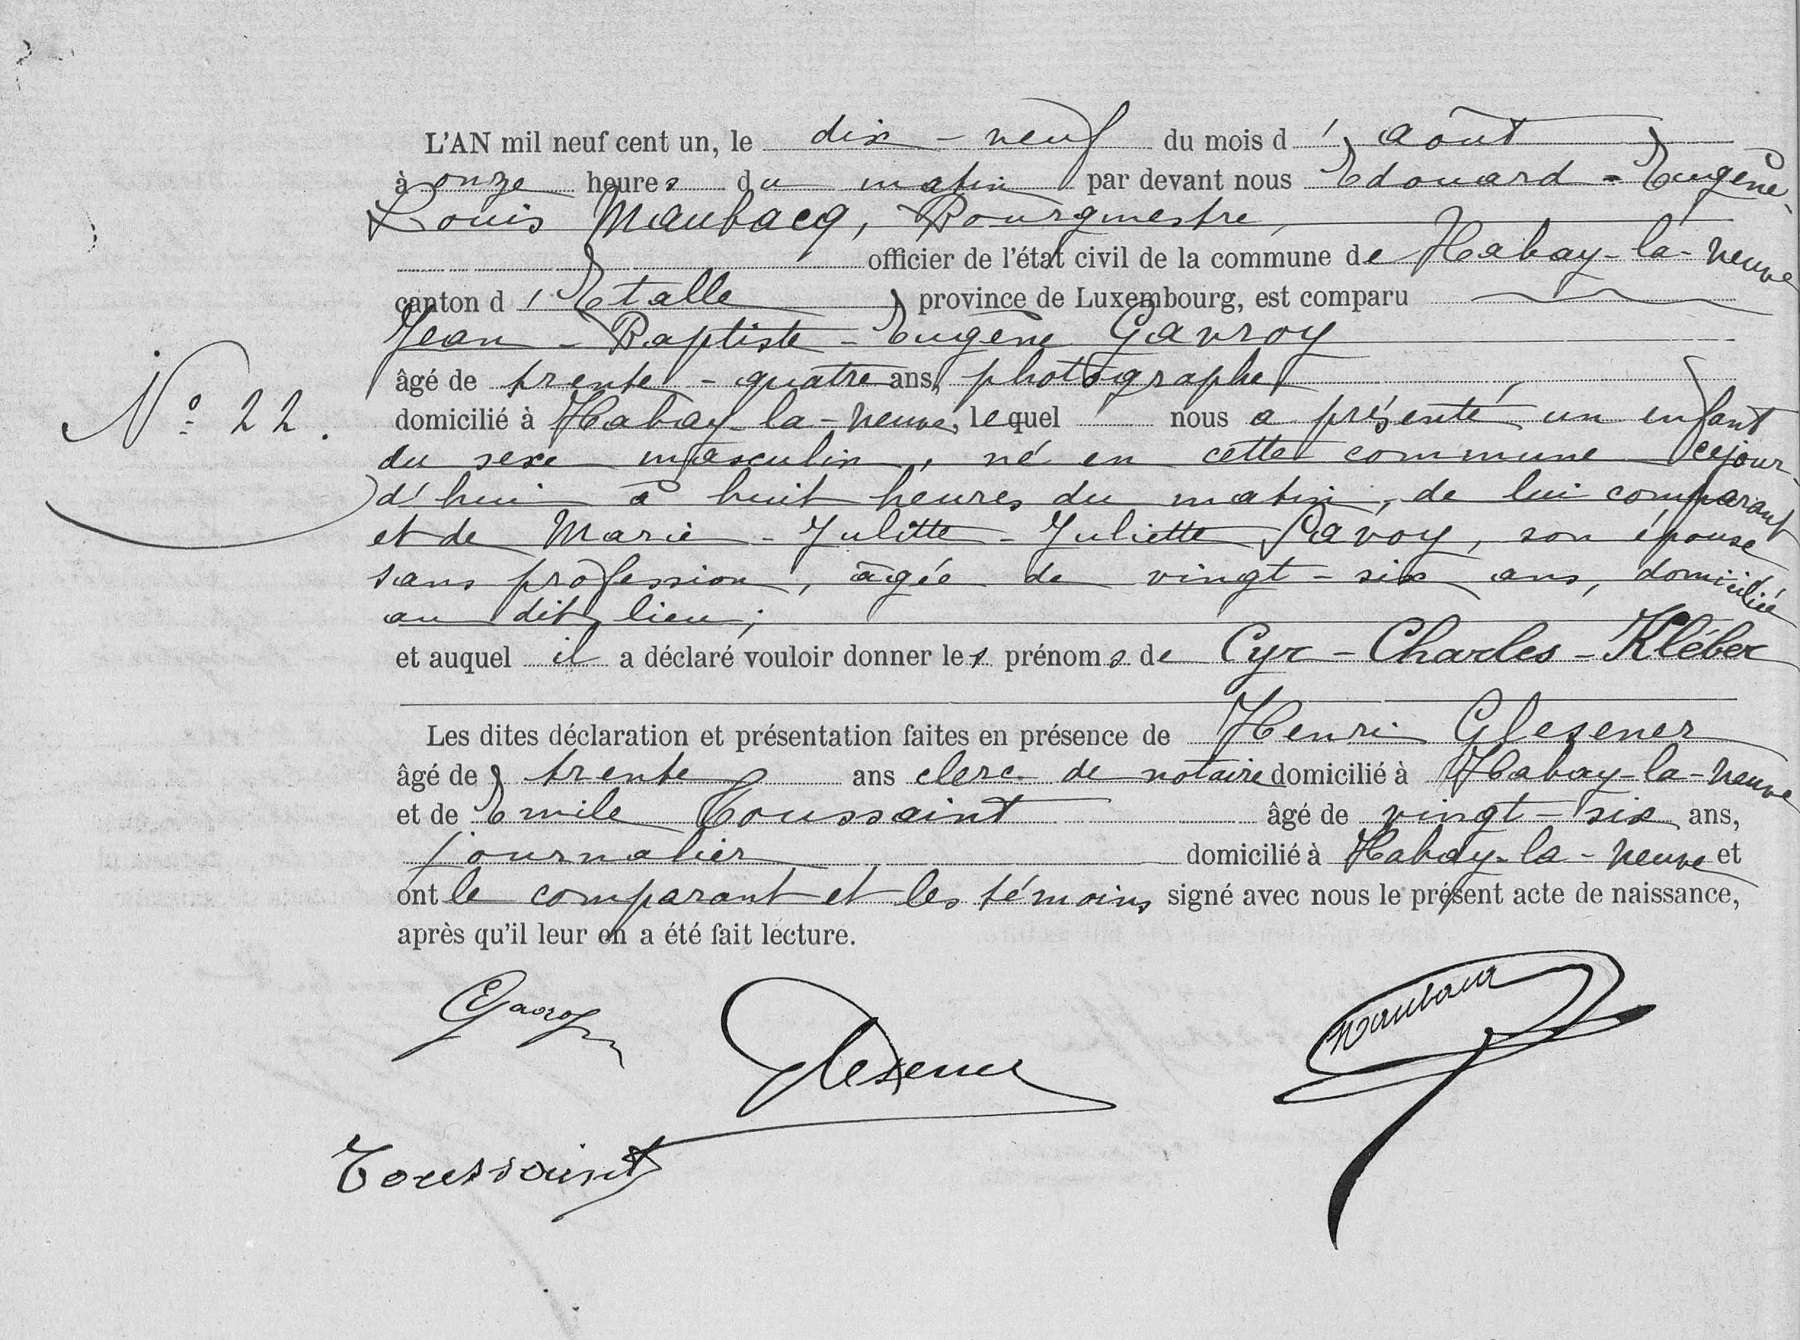 L'AN mil neuf cent un, le dix-neuf du mois d'août
à onze heures du matin par devant nous Edouard-Eugène-
Louis Maubacq, Bourgmestre,
officier de l'état civil de la commune de Habay-la-neuve
canton d'Etalle province de Luxembourg, est comparu
Jean-Baptiste-Eugène Gavroy
âgé de trente-quatre ans, photographe,
N° 22.
domicilié à Habay-la-neuve, lequel nous a présenté un enfant
du sexe masculin, né en cette commune cejour-
d'hui à huit heures du matin, de lui comparant
et de Marie-Julitte-Juliette Pavoy, son épouse
sans profession, âgée de vingt-six ans, domiciliée
au dit lieu;
et auquel il a déclaré vouloir donner les prénoms de Cyr-Charles-Kléber
Les dites déclaration et présentation faites en présence de Henri Glesener
âgé de trente ans clerc de notaire domicilié à Habay-la-neuve
et de Emile Toussaint âgé de vingt-six ans,
journalier domicilié à Habay-la-neuve et
ont le comparant et les témoins signé avec nous le présent acte de naissance,
après qu'il leur en a été fait lecture.
EGavroy
Glesener
Maubacq
Toussaint